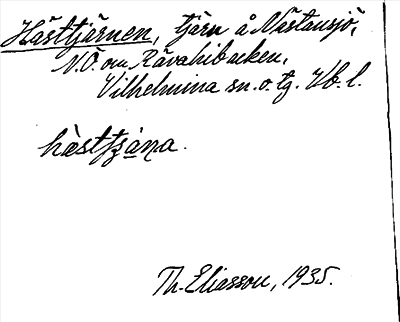 Hästtjärnen, tjärn å Västansjö,
N.Ö. om Rävahibacken,
Vilhelmina sn. o. tg. Vb. l.
hàsttʂ̌ạ́ṇa.
Th. Eliasson, 1935.